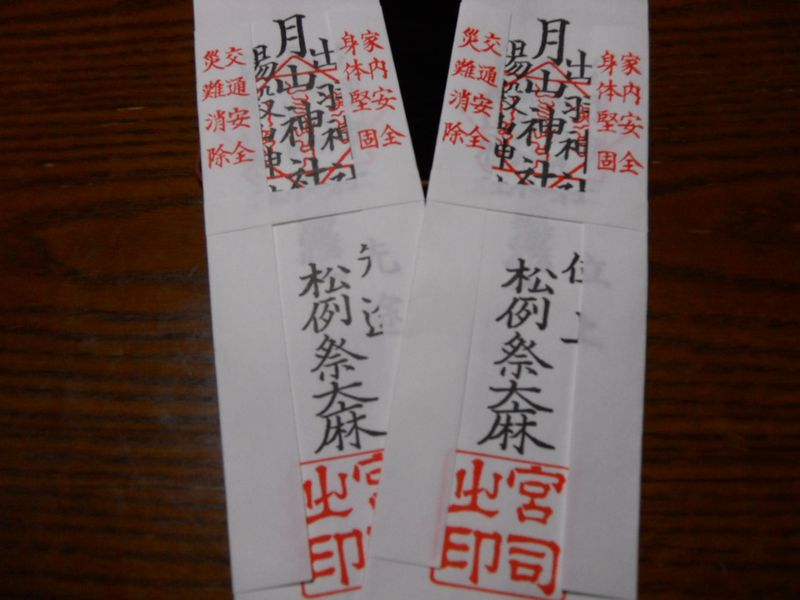 家内安全
身体堅固
出羽神
月山神社
交通安全
災難消除
松例祭大麻
宮
之印
家内安全
身体堅固
出羽神
月山神社
交通安全
災難消除
位上
松例祭大麻
宮司
之印